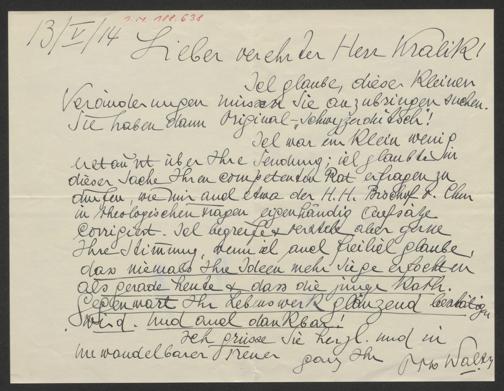 13/V/14
I.N. 188.638
Lieber verehrter Herr Kralik!
Ich glaube, dieser kleinen
Veränderungen müssen Sie anzubringen suchen.
Sie haben dann Original-Schwyzerdütsch!
Ich war ein klein wenig
erstaunt über Ihre Sendung; ich glaubte in
dieser Sache Ihren competenten Rat erfragen zu
dürfen, wie mir auch etwa der H.H. Bischof v. Chur
in theologischen Fragen eigenhändig Aufsätze
corrigiert. Ich begreife & verstehe aber gerne
Ihre Stimmung, wenn ich auch freilich glaube,
das niemals Ihre Ideen mehr Siege erfochten
als gerade heute & dass die junge Kath.
Gegenwart Ihr Lebenswerk glänzend bestätigen
wird. Und auch dankbar!
Ich grüsse Sie herzl. und in
unwandelbarer Treue
ganz Ihr
Otto Walter